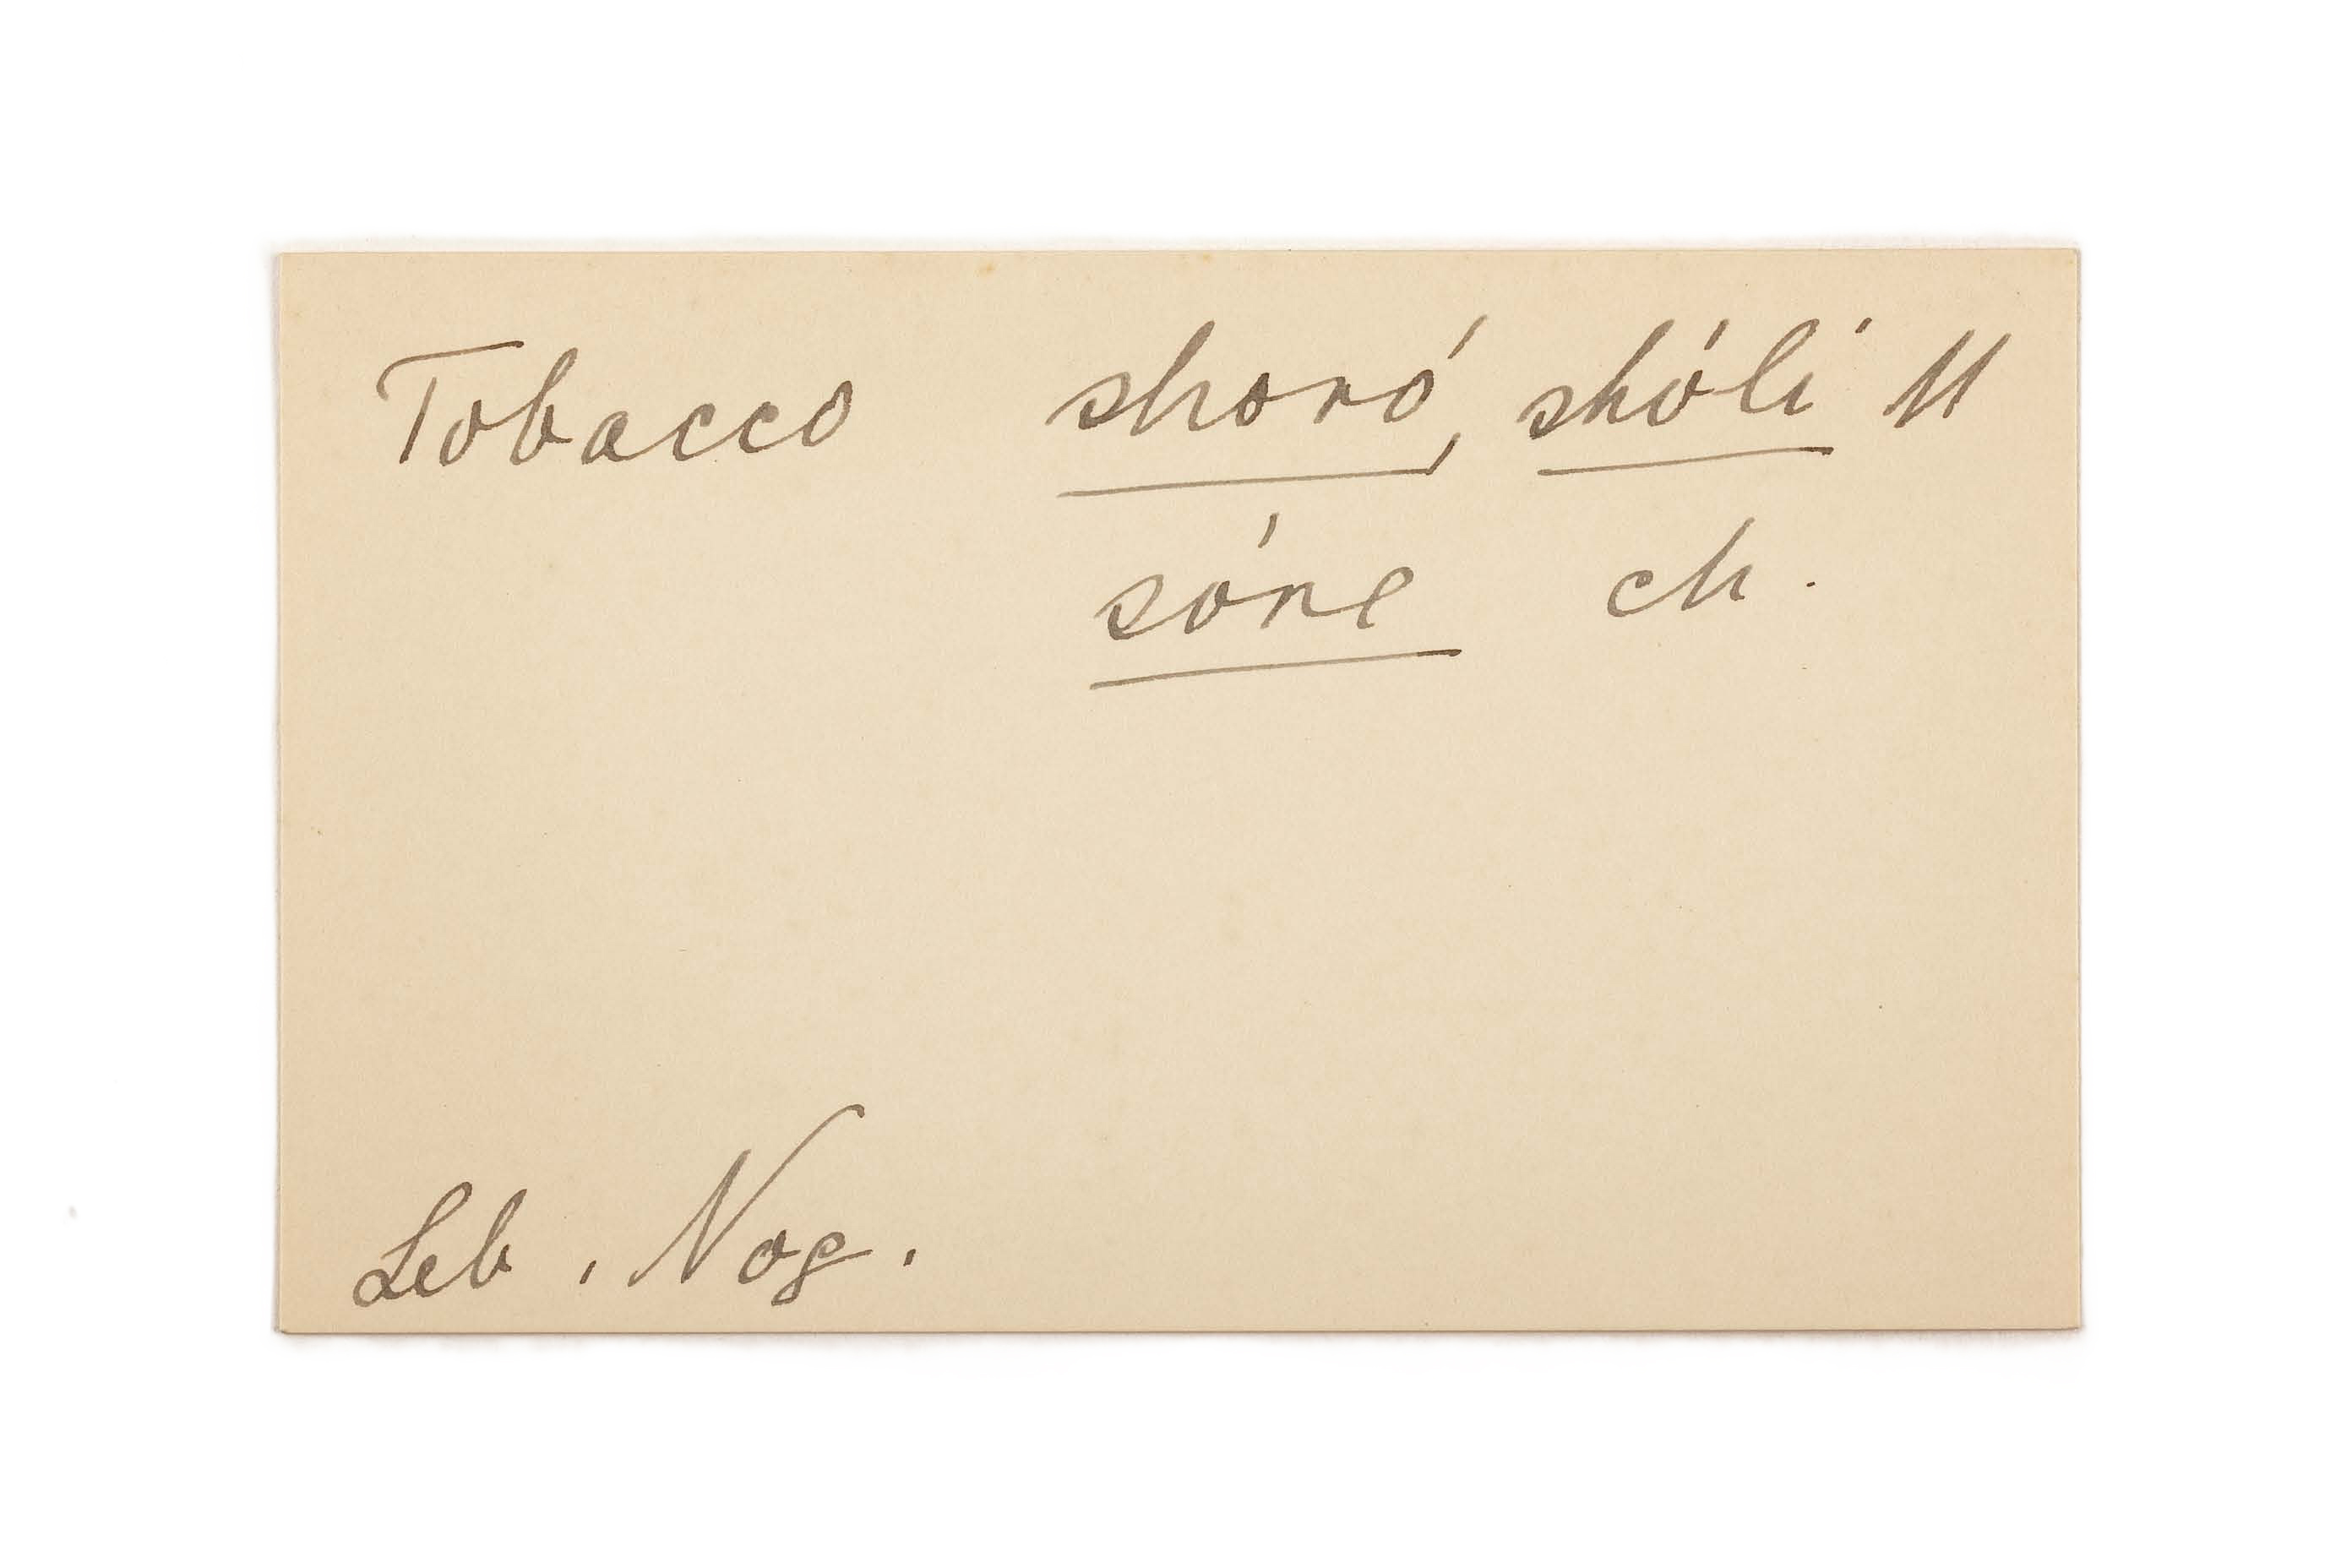 Tobacco shoró, shóli M
sóre ch.
Leb. Nog.